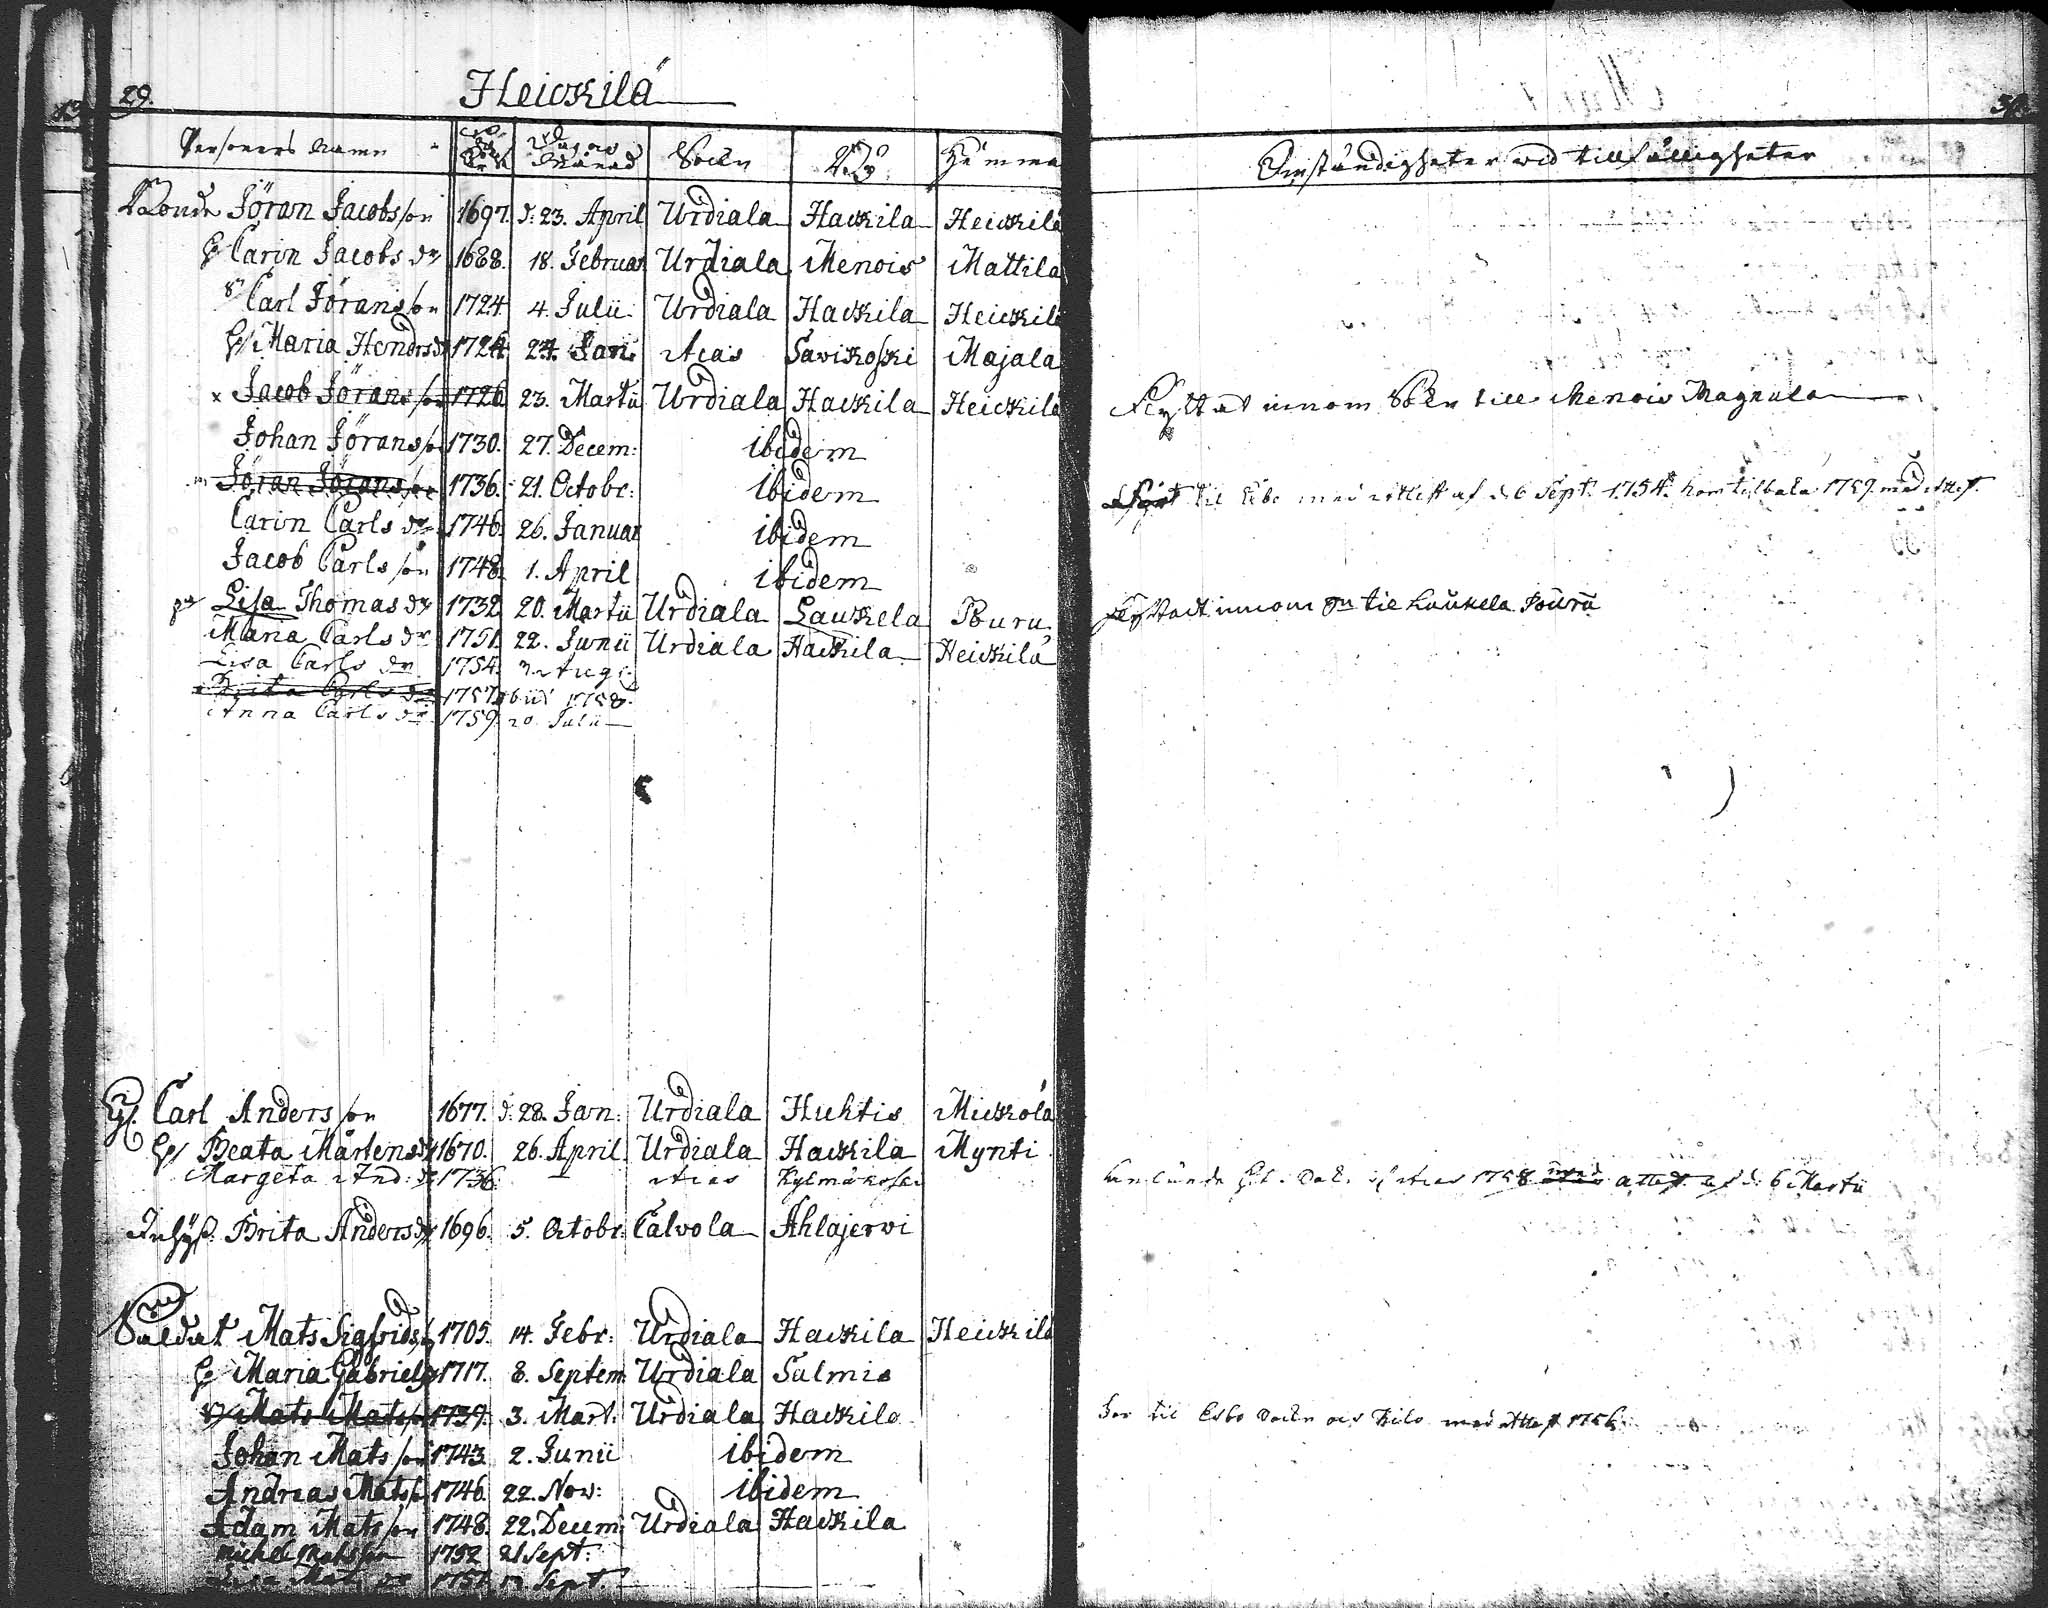 29. Heickilä
Personers Namn Dag och Månad Sokn By Hemma
Bonde Jöran Jacobsson 1697. d. 23. April Urdiala Hackila Heickilä
H Carin Jacobs dr 1688. 18. Februar Urdiala Menois Mattila
Sn Carl Jöransson 1724. 4. Julii Urdiala Hackila Heickilä
H/ Maria Hendrs dr 1724. 24. Jan: Acas Saviкoski Majala
x Jacob Jöransson 1726 23. Martii Urdiala Hackila Heickilä
Johan Jöransson 1730. 27. Decem: ibidem
Jöran Jöransson 1736. 21. Octobr: ibidem
Carin Carls dr 1746. 26. Januar ibidem
Jacob Carls son 1748. 1. April ibidem
Lisa Thomas dr 1732 20. Martii Urdiala Laukela Buru
Maria Carls dr 1751. 22. Junii Urdiala Hackila Heickilä
Lisa Carls dr 1754. Aug:
Brita Carls dr 1757. 1758.
Anna Carls dr 1759. 20. Julii
Carl Anders son 1677. d. 28. Jan: Urdiala Huhtis Mickola
H/ Beata Mårtens dr 1670. 26. April Urdiala Hackila Mynti
Margeta And: dr 1736. Acas Kylmäkoski
Inhys. Brita Anders dr 1696. 5. Octobr: Calvola Ahlajervi
Soldat Mats Sigfrids son 1705. 14. Febr: Urdiala Hackila Heickilä
H/ Maria Gabriels dr 1717. 8. Septem Urdiala Salmis
Sn/ Mats Matsson 1739. 3. Mart: Urdiala Hackila
Johan Mats son 1743 2. Junii ibidem
Andreas Mats son 1746. 22. Nov: ibidem
Adam Mats son 1748. 22. Decem: Urdiala Hackila
Michel Matsson 1752 21 Sept:
Sept.
Omständigheter wid tillfälligheter
Flyttat innom Sokn till Menois Magnula
til med attest af d. 6 Sept. 1754. kom tilbaka 1759. med attest.
Flyttadt innom Sn til Laukela Puru
1758 med attest af d. 6 Martii
For til Esbo Sockn och Kilo med attest 1756.